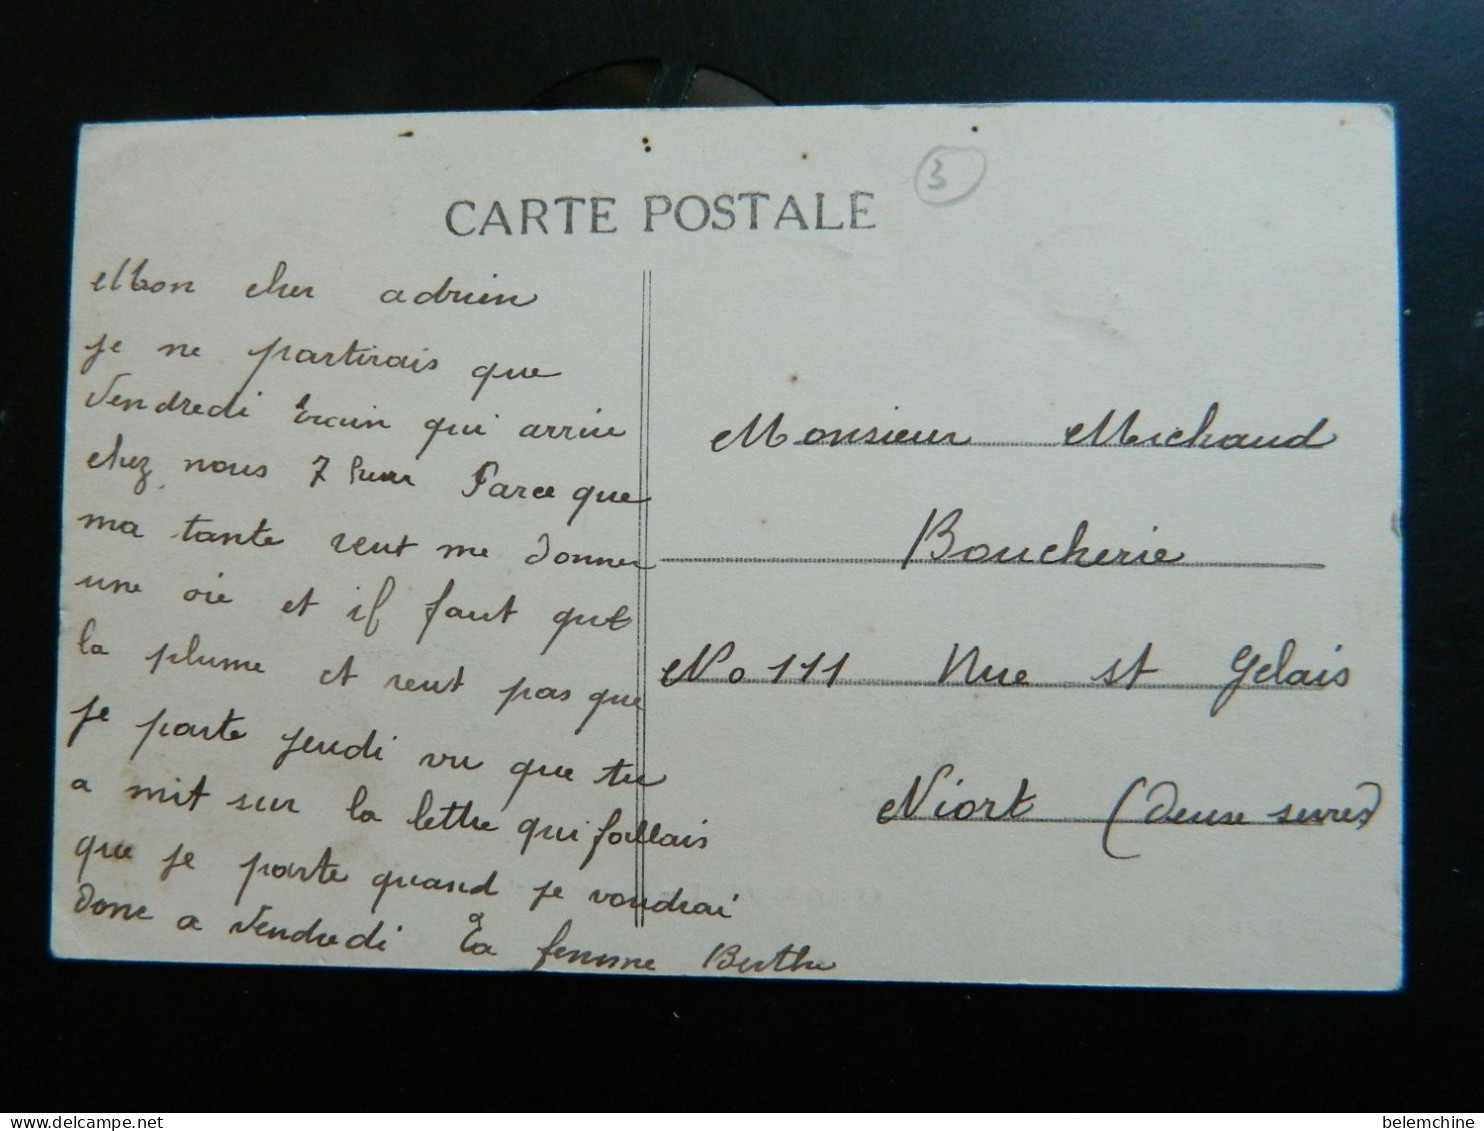 CARTE POSTALE
3
Mon cher adrien
je ne partirais que
Vendredi train qui arrive
chez nous 7 heur Parce que
ma tante veut me donner
une oie et il faut que
la plume et veut pas que
je parte jeudi vu que tu
a mit sur la lettre qui fallais
que je parte quand je voudrai
donc a Vendredi Ta femme Berthe
Monsieur Michaud
Boucherie
No 111 Rue st Gelais
Niort (deuxe sevres)
belemchine